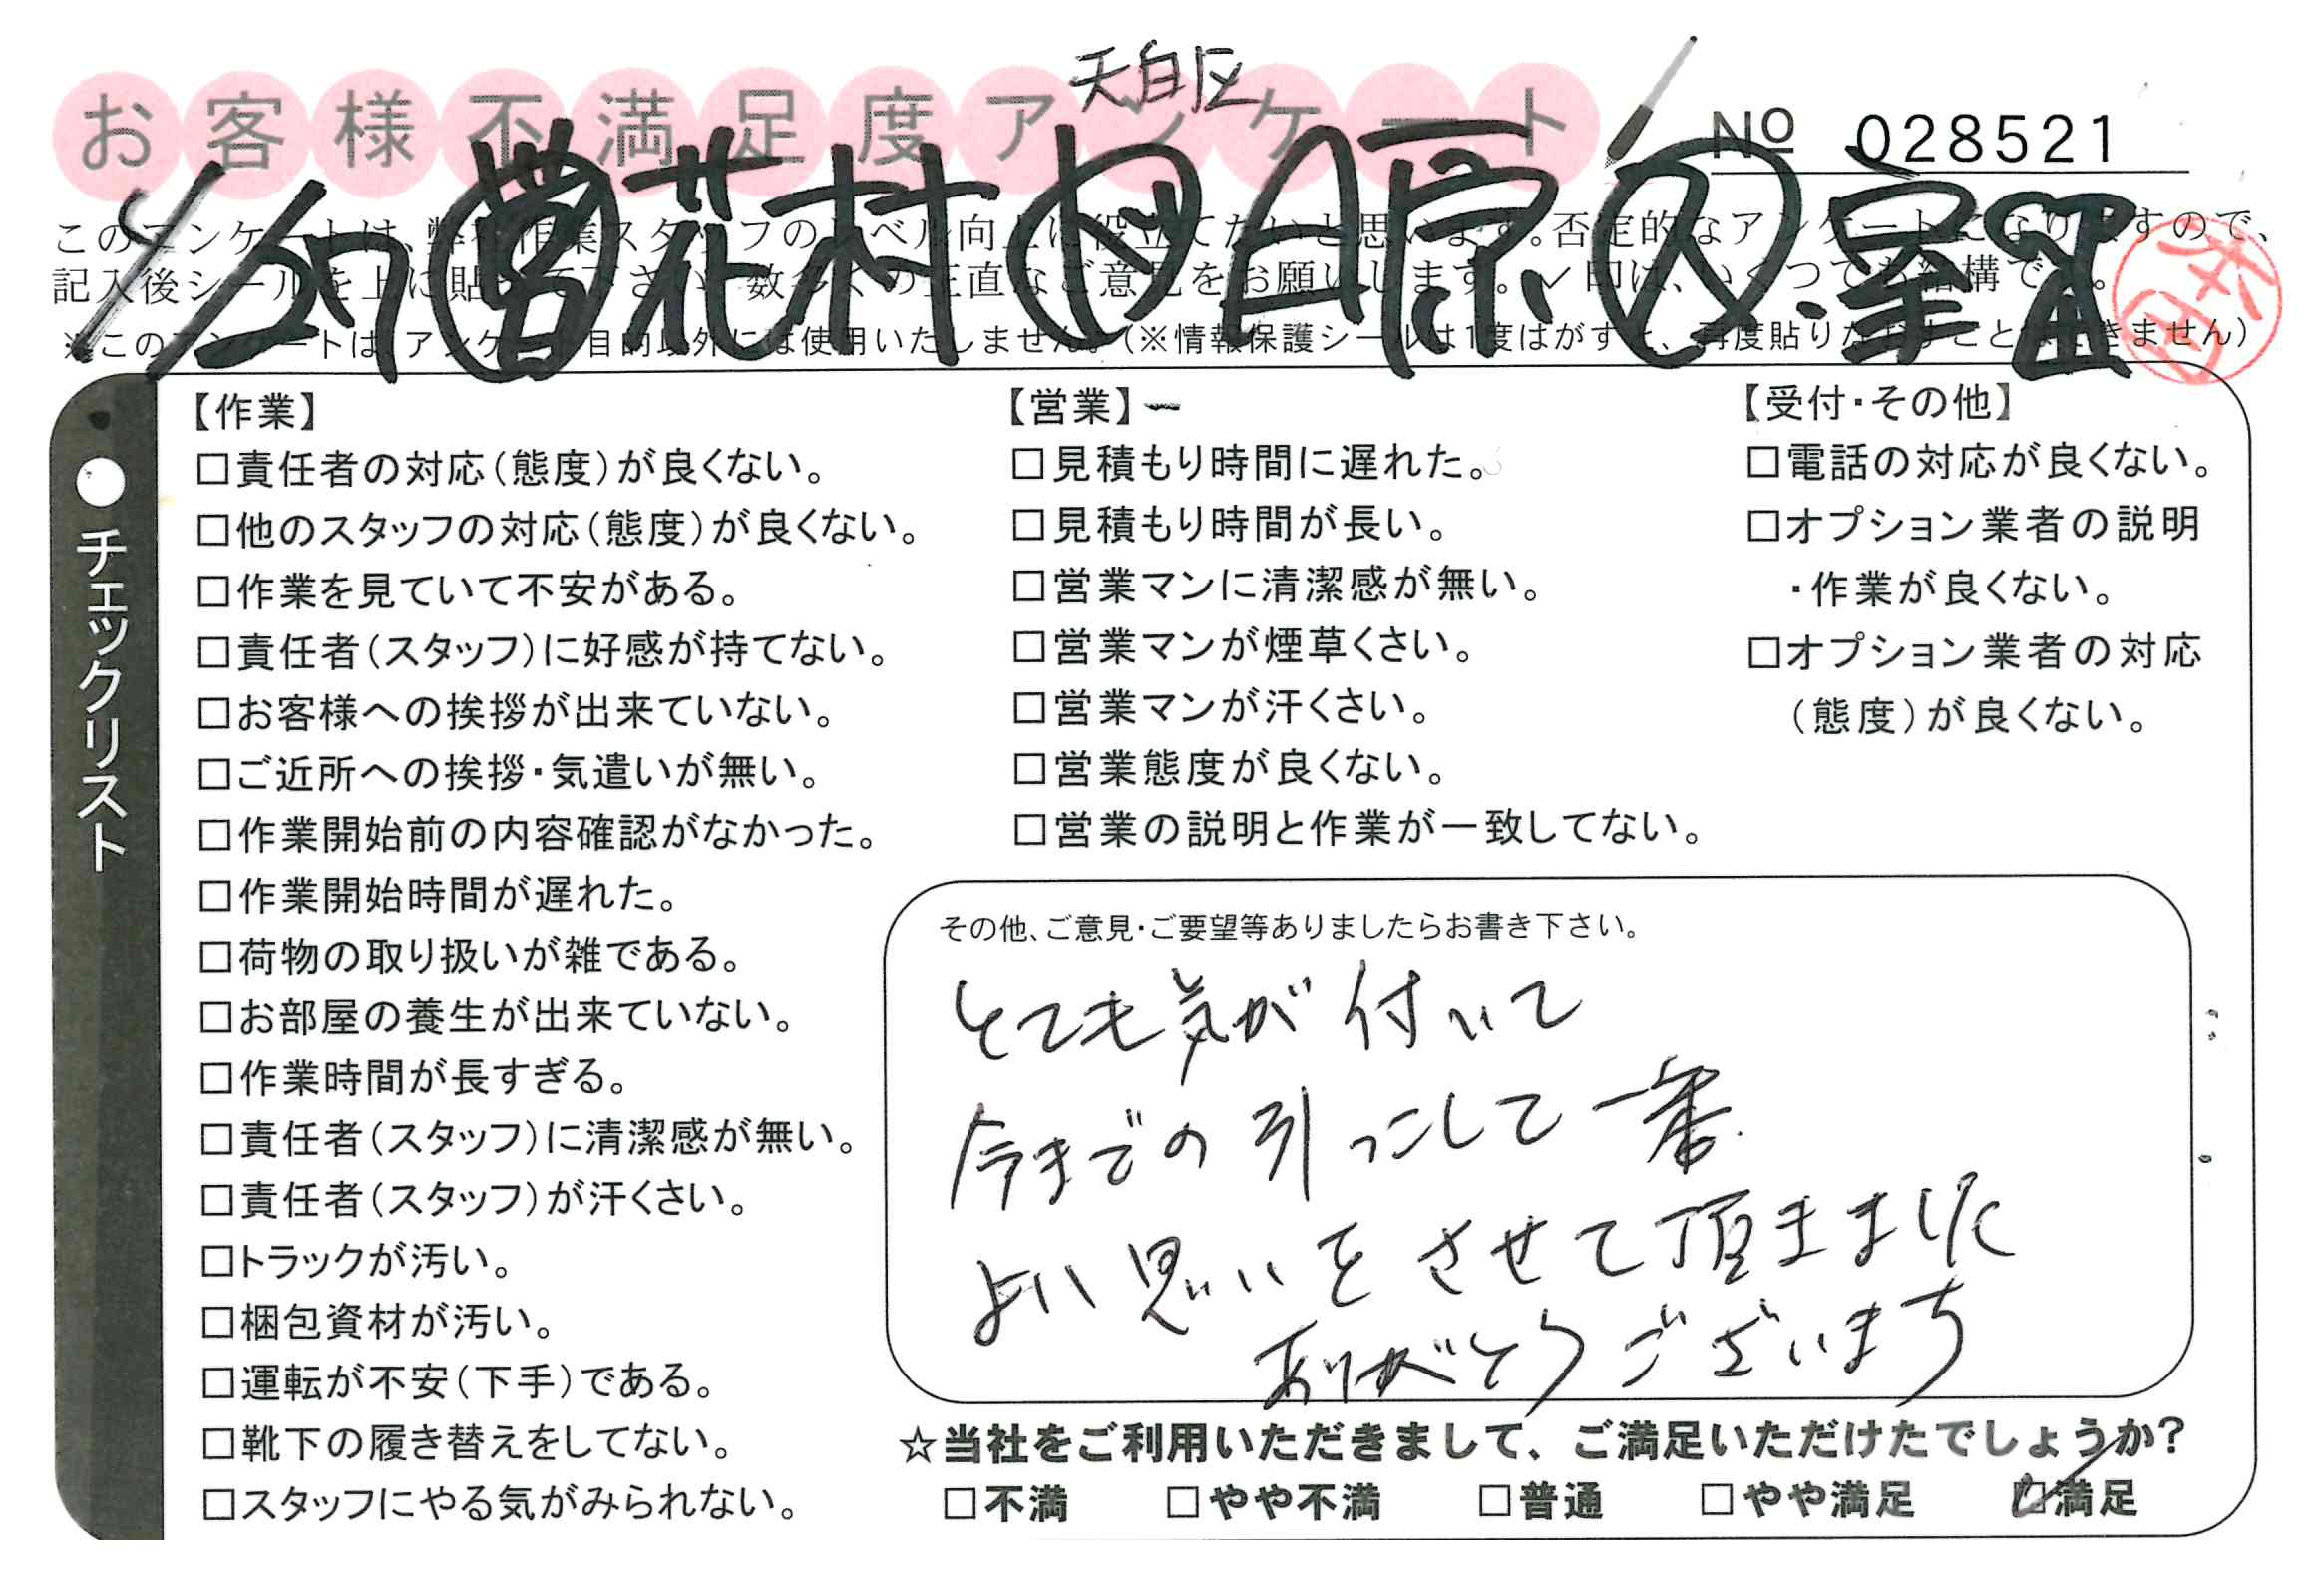 天白区
お客様不満足度アンケート
No 028521
4/27 営 花村 ド 日原 人
このアンケートは、弊社作業スタッフのレベル向上に役立てたいと思います。否定的なアンケートになりますので、
記入後シールを上に貼って下さい。数多くの正直なご意見をお願いします。✓印は、いくつでも結構です。
※このアンケートは、アンケート目的以外には使用いたしません。(※情報保護シールは1度はがすと、再度貼りなおすことはできません)
●チェックリスト
【作業】
□責任者の対応(態度)が良くない。
□他のスタッフの対応(態度)が良くない。
□作業を見ていて不安がある。
□責任者(スタッフ)に好感が持てない。
□お客様への挨拶が出来ていない。
□ご近所への挨拶・気遣いが無い。
□作業開始前の内容確認がなかった。
□作業開始時間が遅れた。
□荷物の取り扱いが雑である。
□お部屋の養生が出来ていない。
□作業時間が長すぎる。
□責任者(スタッフ)に清潔感が無い。
□責任者(スタッフ)が汗くさい。
□トラックが汚い。
□梱包資材が汚い。
□運転が不安(下手)である。
□靴下の履き替えをしてない。
□スタッフにやる気がみられない。
【営業】
□見積もり時間に遅れた。
□見積もり時間が長い。
□営業マンに清潔感が無い。
□営業マンが煙草くさい。
□営業マンが汗くさい。
□営業態度が良くない。
□営業の説明と作業が一致してない。
【受付・その他】
□電話の対応が良くない。
□オプション業者の説明
・作業が良くない。
□オプション業者の対応
(態度)が良くない。
その他、ご意見・ご要望等ありましたらお書き下さい。
とても気が付いて
今までの引っこしで一番
よい思いをさせて頂きました
ありがとうございます
☆当社をご利用いただきまして、ご満足いただけたでしょうか?
□不満 □やや不満 □普通 □やや満足 ☑満足